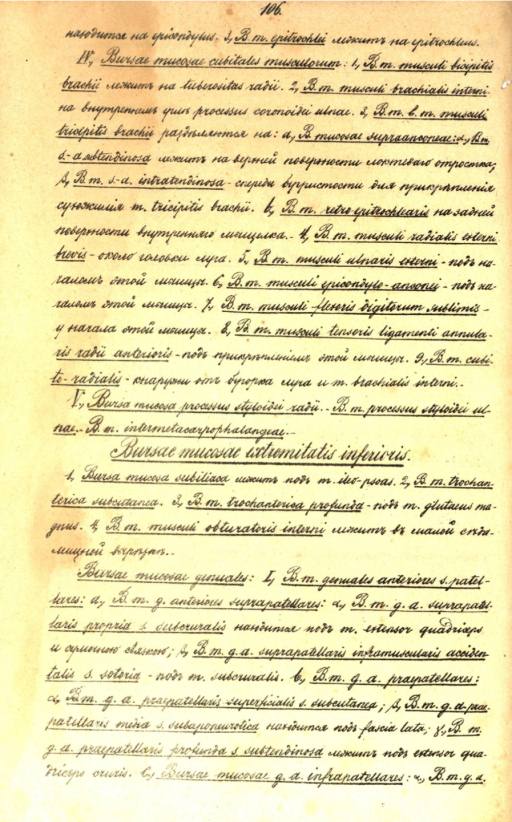 106.
находится на epicondylus. 2, B. m. epitrochlii лежитъ на epitrochleus.
IV, Bursae mucosae cubitales musculorum: 1, B. m. musculi bicipitis
brachii лежитъ на tuberositas radii. 2, B. m. musculi brachialis interni
на внутреннемъ углѣ processus coronoidei ulnae. 3, B. m. b. m. musculi
tricipitis brachii раздѣляются на: a, B. mucosae supraanconeae: α, B. m.
s.-a. subtendinosa лежитъ на верхней поверхности локтеваго отростка;
β, B. m. s.-a. intratendinosa - спереди бугристости для прикрѣпленія
сухожилія m. tricipitis brachii. b, B. m. retroepitrochlearis на задней
поверхности внутренняго мыщелка. - 4, B. m. musculi radialis externi
brevis - около головки луча. 5, B. m. musculi ulnaris externi - подъ на-
чаломъ этой мышцы. 6, B. m. musculi epicondylo-anconei - подъ на-
чаломъ этой мышцы. 7, B. m. musculi flexoris digitorum sublimis -
у начала этой мышцы. 8, B. m. musculi tensoris ligamenti annula-
ris radii anterioris - подъ прикрѣпленіемъ этой мышцы. 9, B. m. cubi-
to-radialis - кнаружи отъ бугорка луча и m. brachialis interni. -
V, Bursa mucosa processus styloidei radii. - B. m. processus styloidei ul-
nae. - B. m. intermetacarpophalangeae. -
Bursae mucosae extremitatis inferioris.
1, Bursa mucosa subiliaca лежитъ подъ m. ileo-psoas. 2, B. m. trochan-
terica subcutanea. 3, B. m. trochanterica profunda - подъ m. glutaeus ma-
gnus. 4, B. m. musculi obturatoris interni лежитъ въ малой сѣда-
лищной вырѣзкѣ. -
Bursae mucosae genuales: I, B. m. genuales anteriores s. patel-
lares: a, B. m. g. anteriores suprapatellares: α, B. m. g. a. suprapatel-
laris propria s. subcruralis находится подъ m. extensor quadriceps
и сумочною связкою; β, B. m. g. a. suprapatellaris inframuscularis acciden-
talis s. sotoria - подъ m. subcruralis. b, B. m. g. a. praepatellares:
α, B. m. g. a. praepatellaris superficialis s. subcutanea; β, B. m. g. a. prae-
patellaris media s. subaponeurotica находится подъ fascia lata; γ, B. m.
g. a. praepatellaris profunda s. subtendinosa лежитъ подъ extensor qua-
driceps cruris. c, Bursae mucosae g. a. infrapatellares: α, B. m. g. a.